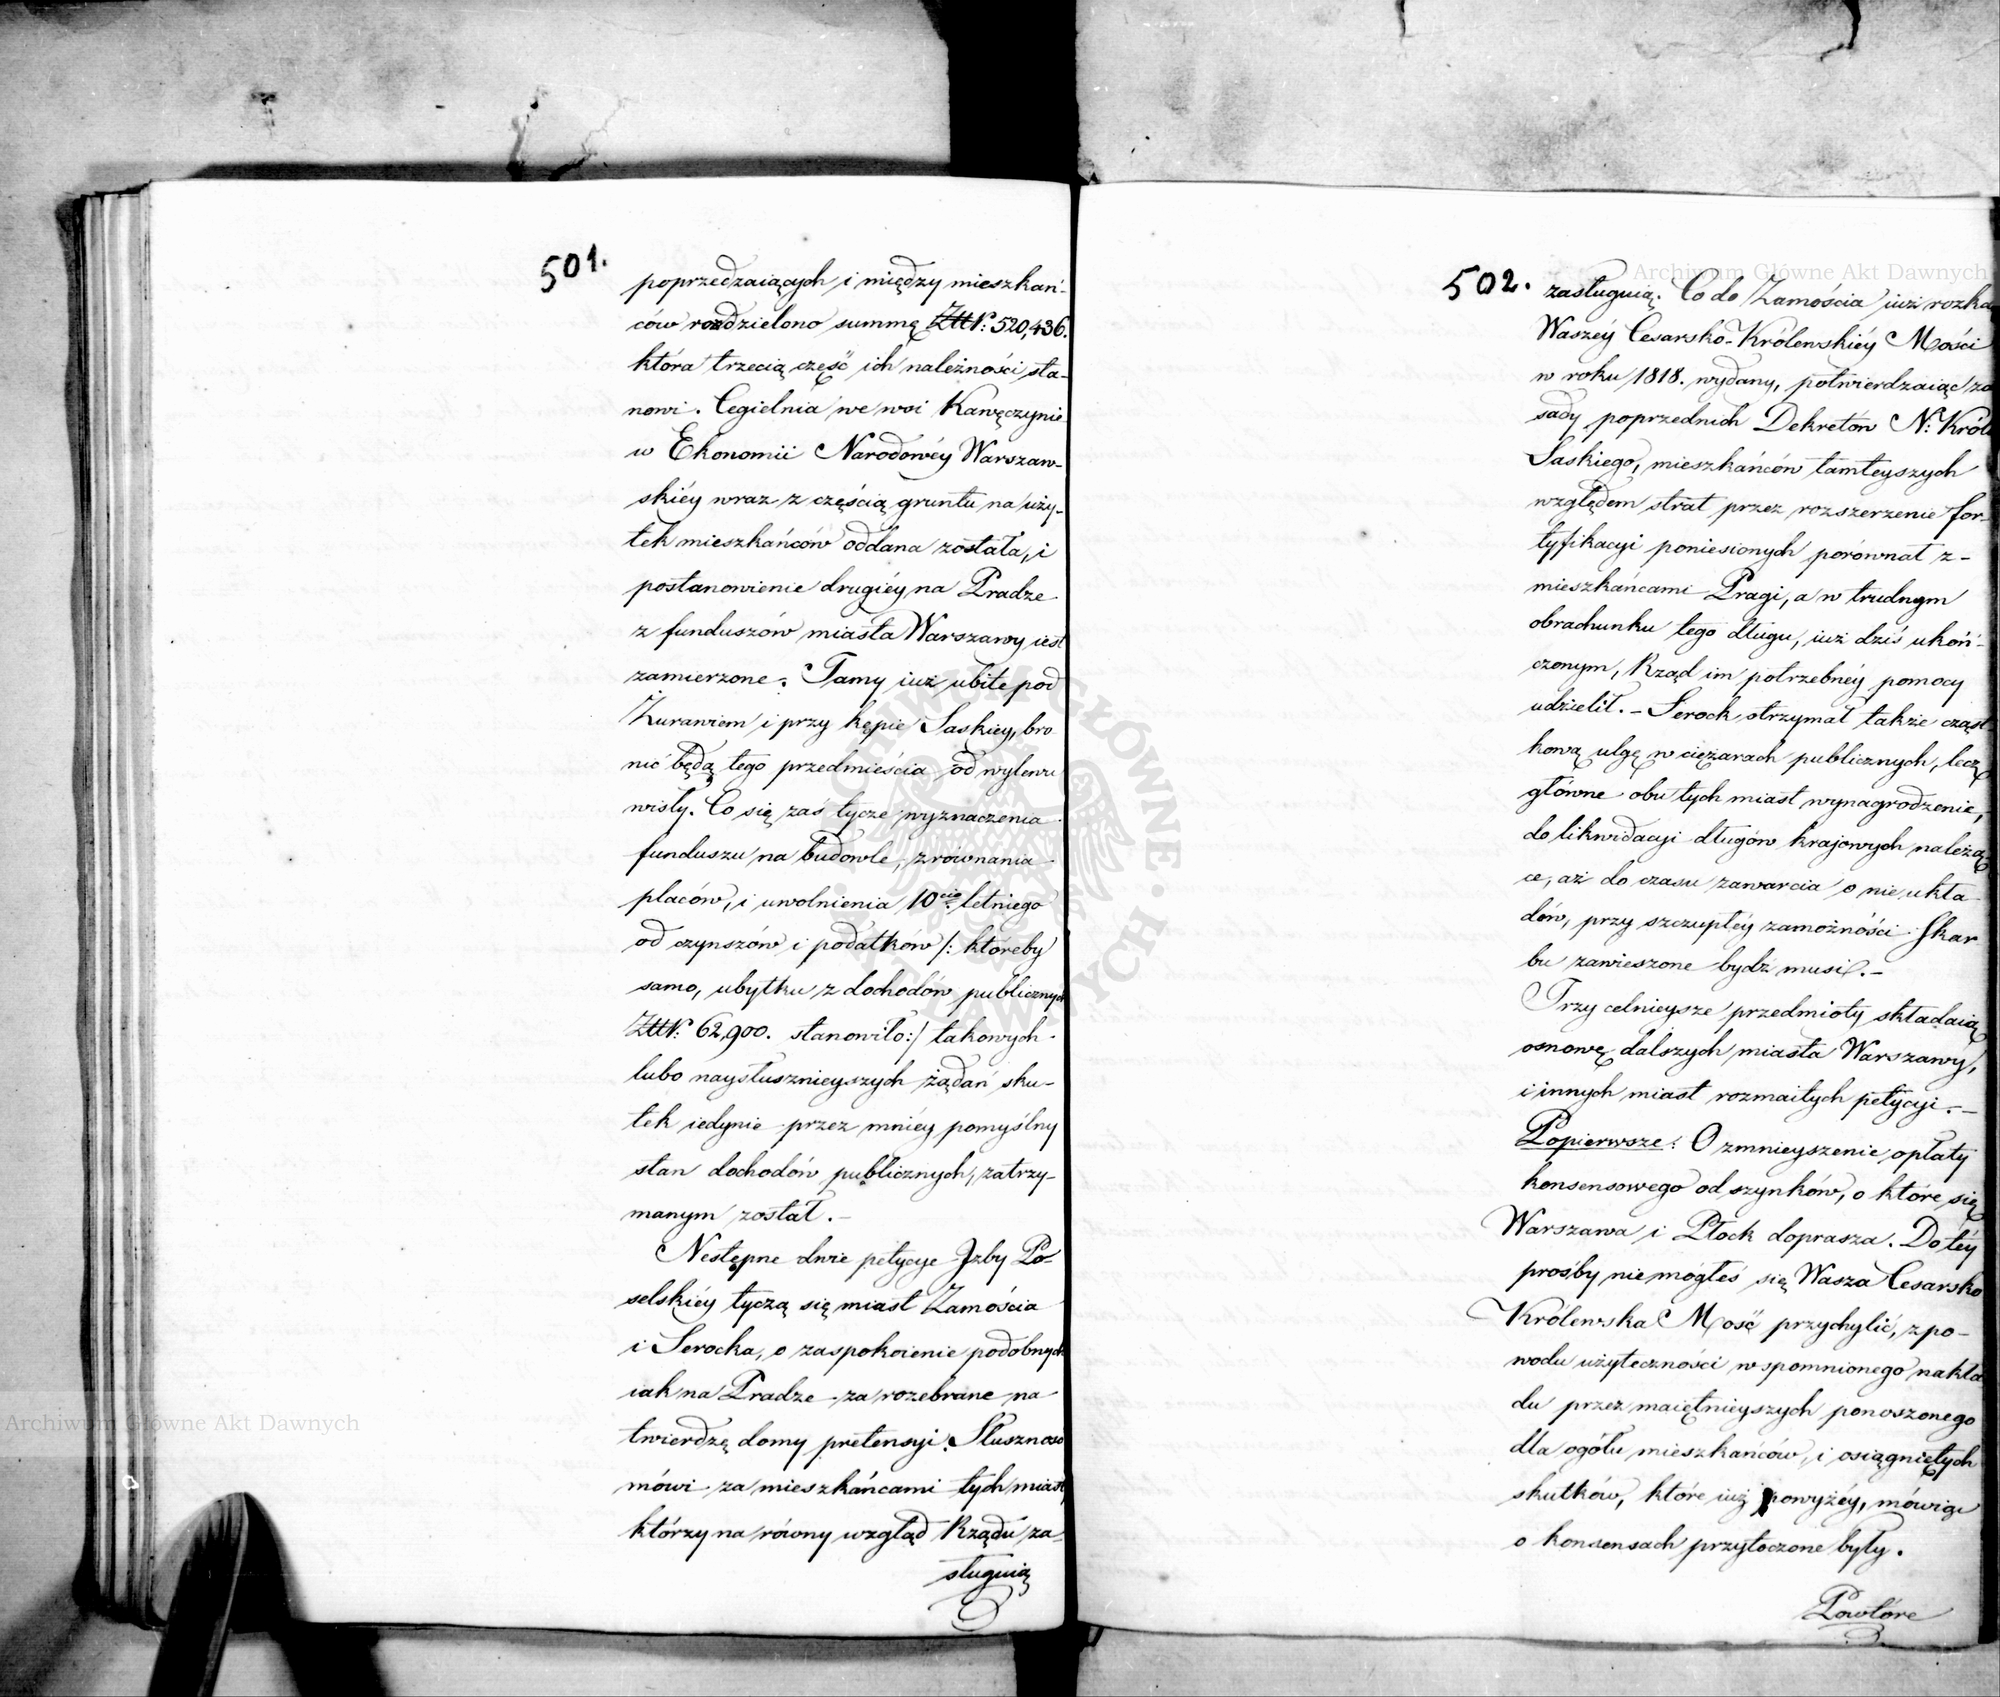 501.
poprzedzaiących i między mieszkań-
ców rozdzielono summę Złł N: 520,436.
która trzecią część ich należności sta-
nowi. Cegielnia we wsi Kawęczynie
w Ekonomii Narodowéy Warszaw-
skiéy wraz z częścią gruntu na uży-
tek mieszkańców oddana została, i
postanowienie drugiéy na Pradze
z funduszów miasta Warszawy iest
zamierzone. Tamy iuż ubite pod
Żuraniem i przy kępie Saskiey, bro
nić będą tego przedmieścia od wylewu
wisły. Co się zaś tycze wyznaczenia
funduszu na budowle, zrównania
placów, i uwolnienia 10cio letniego
od czynszów i podatków /: któreby
samo, ubytku z dochodów publicznych
Złł N: 62,900. stanowiło :/ takowych
lubo naysłusznieyszych żądań sku-
tek iedynie przez mniéy pomyślny
stan dochodów publicznych, zatrzy-
manym został. –
Nestępne dwie petycye Jzby Po-
selskiéy tyczą się miast Zamościa
i Serocka, o zaspokoienie podobnych
iak na Pradze za rozebrane na
twierdzę domy pretensyi. Słuszność
mówi za mieszkańcami tych miast,
którzy na równy wzgląd Rządu za-
sługuią
502.
zasługuią. Co do Zamościa iuż rozkaz
Waszéy Cesarsko-Królewskiéy Mości
w roku 1818. wydany, potwierdzaiąc za
sady poprzednich Dekretów N: Króla
Saskiego, mieszkańców tamteyszych
względem strat przez rozszerzenie for-
tyfikacyi poniesionych porównał z-
mieszkańcami Pragi, a w trudnym
obrachunku tego długu, iuż dziś ukoń-
czonym, Rząd im potrzebnéy pomocy
udzielił. – Serock otrzymał także cząst-
kową ulgę w ciężarach publicznych, lecz
główne obu tych miast wynagrodzenie,
do likwidacyi długów krajowych należą-
ce, aż do czasu zawarcia o nie ukła
dów, przy szczupłéy zamożności Skar
bu zawieszone bydź musi. –
Trzy celnieysze przedmioty składaią
osnowę dalszych miasta Warszawy,
i innych miast rozmaitych petycyi. –
Popierwsze: O zmnieyszenie opłaty
konsensowego od szynków, o które się
Warszawa i Płock doprasza. Do téy
prośby nie mogłeś się Wasza Cesarsko
Królewska Mość przychylić, z po-
wodu użyteczności wspomnionego nakła
du przez maiętnieyszych ponoszonego
dla ogółu mieszkańców, i osiągniętych
skutków, które iuż powyżéy, mówiąc
o konsensach przytoczone były.
Powtóre
Archiwum Główne Akt Dawnych
Archiwum Główne Akt Dawnych
ARCHIWUM GŁÓWNE AKT DAWNYCH